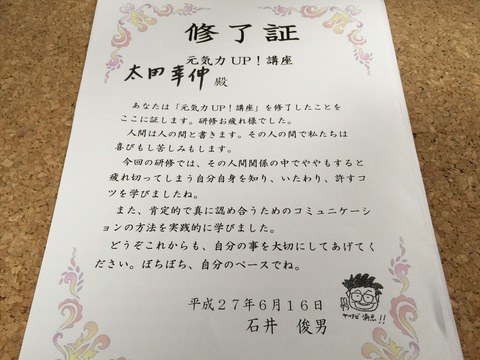 修了証
元気力UP！講座
太田幸伸 殿
あなたは「元気力UP！講座」を修了したことを
ここに証します。研修お疲れ様でした。
人間は人の間と書きます。その人の間で私たちは
喜びもし苦しみもします。
今回の研修では、その人間関係の中でややもすると
疲れ切ってしまう自分自身を知り、いたわり、許すコ
ツを学びましたね。
また、肯定的で真に認め合うためのコミュニケーシ
ョンの方法を実践的に学びました。
どうぞこれからも、自分の事を大切にしてあげてく
ださい。ぼちぼち、自分のペースでね。
平成２７年６月１６日
石井 俊男